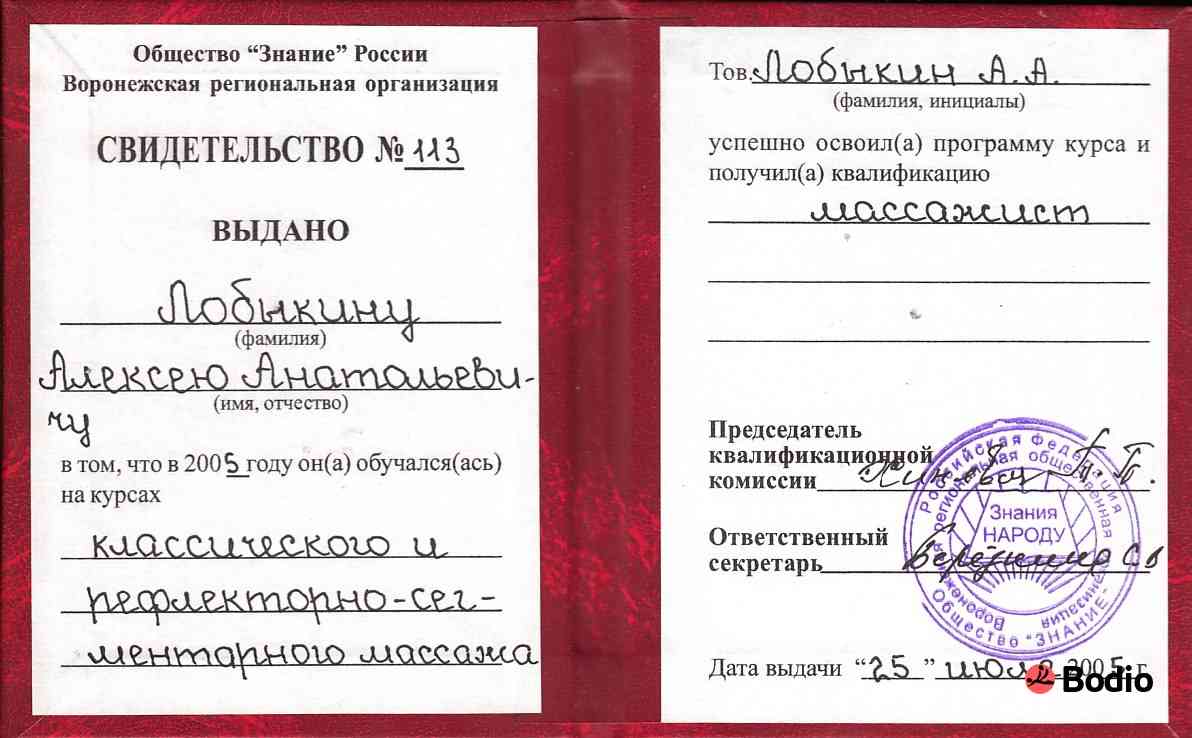 Общество “Знание” России
Воронежская региональная организация
СВИДЕТЕЛЬСТВО № 113
ВЫДАНО
Лобыкину
(фамилия)
Алексею Анатольеви-
(имя, отчество)
чу
в том, что в 2005 году он(а) обучался(ась)
на курсах
классического и
рефлекторно-сег-
ментарного массажа
Тов. Лобыкин А.А.
(фамилия, инициалы)
успешно освоил(а) программу курса и
получил(а) квалификацию
массажист
Председатель
квалификационной
комиссии
Ответственный
секретарь
Российская Федерация
региональная общественная организация
Воронежская
Знания
НАРОДУ
Общество "ЗНАНИЕ"
Дата выдачи “25” июля 2005 г.
Bodio